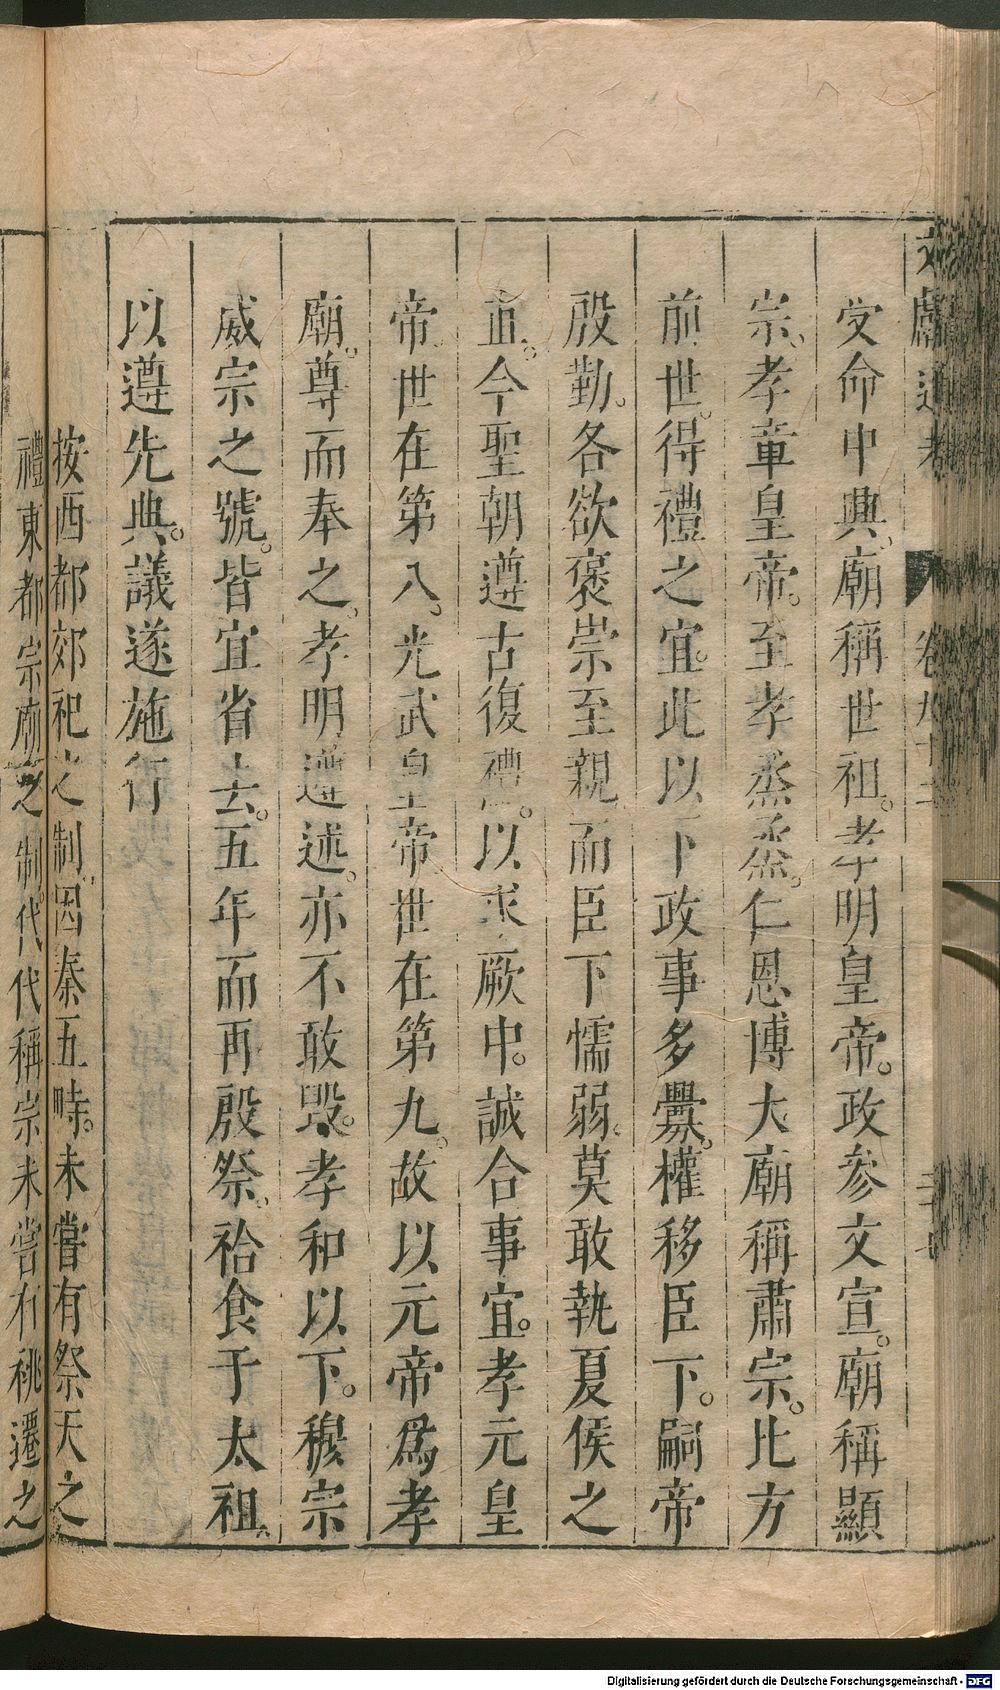 文獻通考 卷九十二
受命中興。廟稱世祖。孝明皇帝。政參文宣。廟稱顯
宗。孝章皇帝。至孝烝烝。仁恩博大。廟稱肅宗。比方
前世。得禮之宜。此以下政事多釁。權移臣下。嗣帝
殷勤。各欲褒崇至親。而臣下懦弱。莫敢執夏侯之
直。今聖朝遵古復禮。以求厥中。誠合事宜。孝元皇
帝世在第八。光武皇帝世在第九。故以元帝爲孝
廟。尊而奉之。孝明遵述。亦不敢毀。孝和以下。穆宗
威宗之號。皆宜省去。五年而再殷祭。祫食于太祖。
以遵先典。議遂施行
按西都郊祀之制。因秦五畤。未嘗有祭天之
禮東都宗廟之制。代代稱宗未嘗有祧遷之
Digitalisierung gefördert durch die Deutsche Forschungsgemeinschaft - DFG